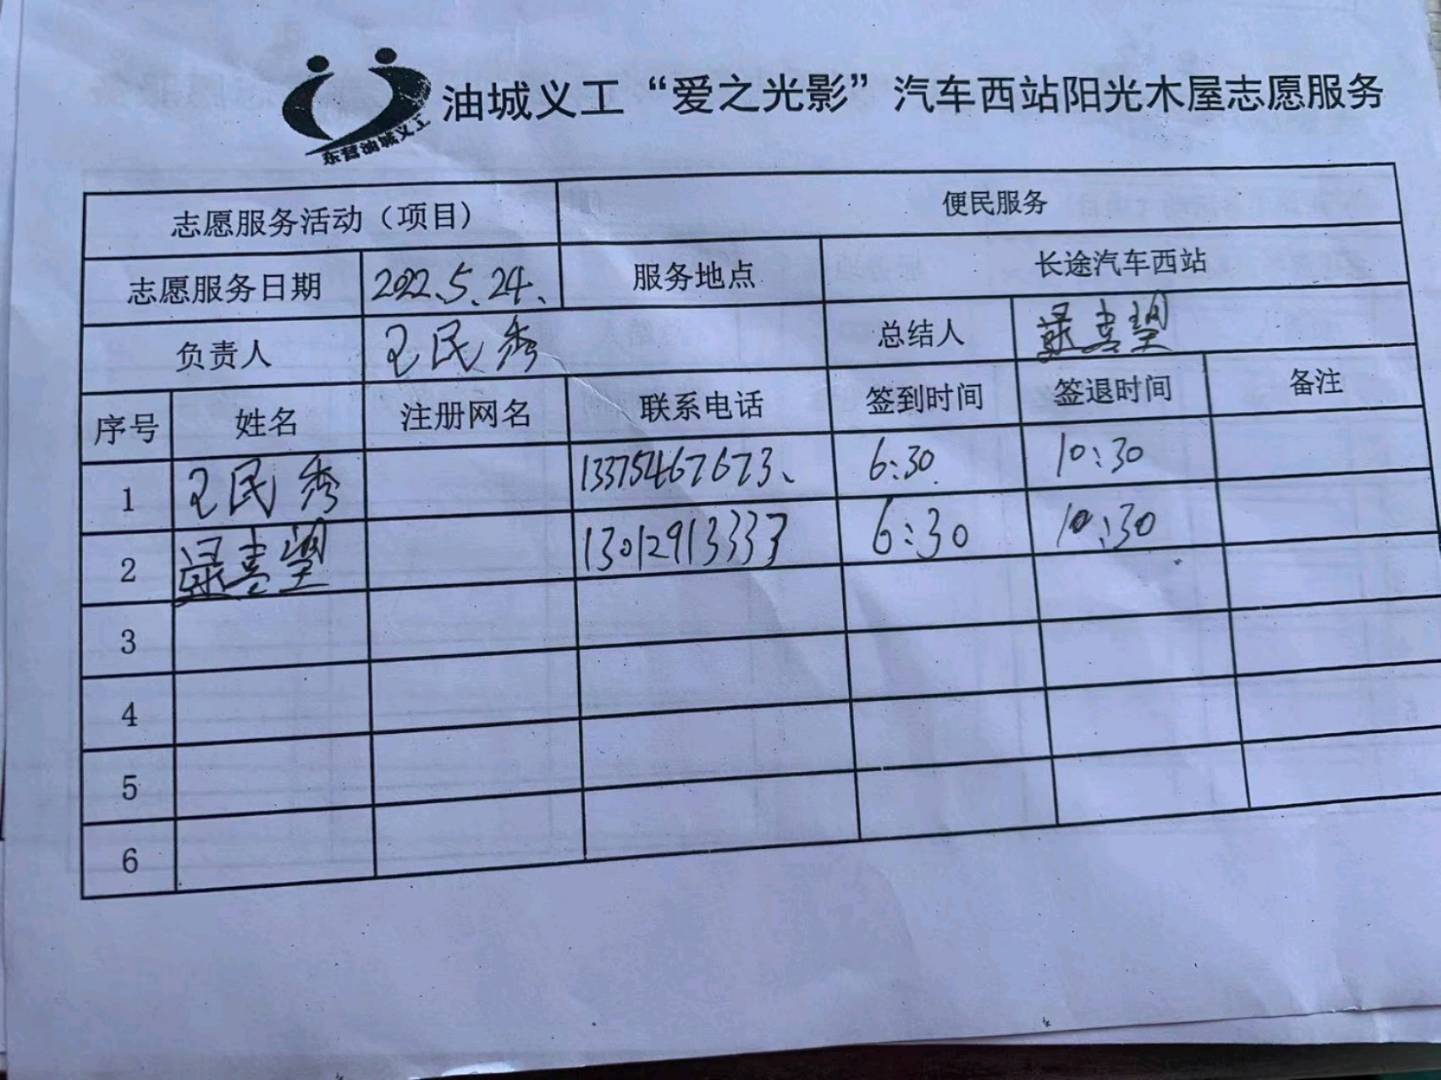 东营油城义工
油城义工“爱之光影”汽车西站阳光木屋志愿服务
志愿服务活动（项目） 便民服务
志愿服务日期 2022.5.24. 服务地点 长途汽车西站
负责人 王民秀 总结人 喜望
序号 姓名 注册网名 联系电话 签到时间 签退时间 备注
1 王民秀 13375467673、 6:30 10:30
2 喜望 13012913333 6:30 10:30
3
4
5
6